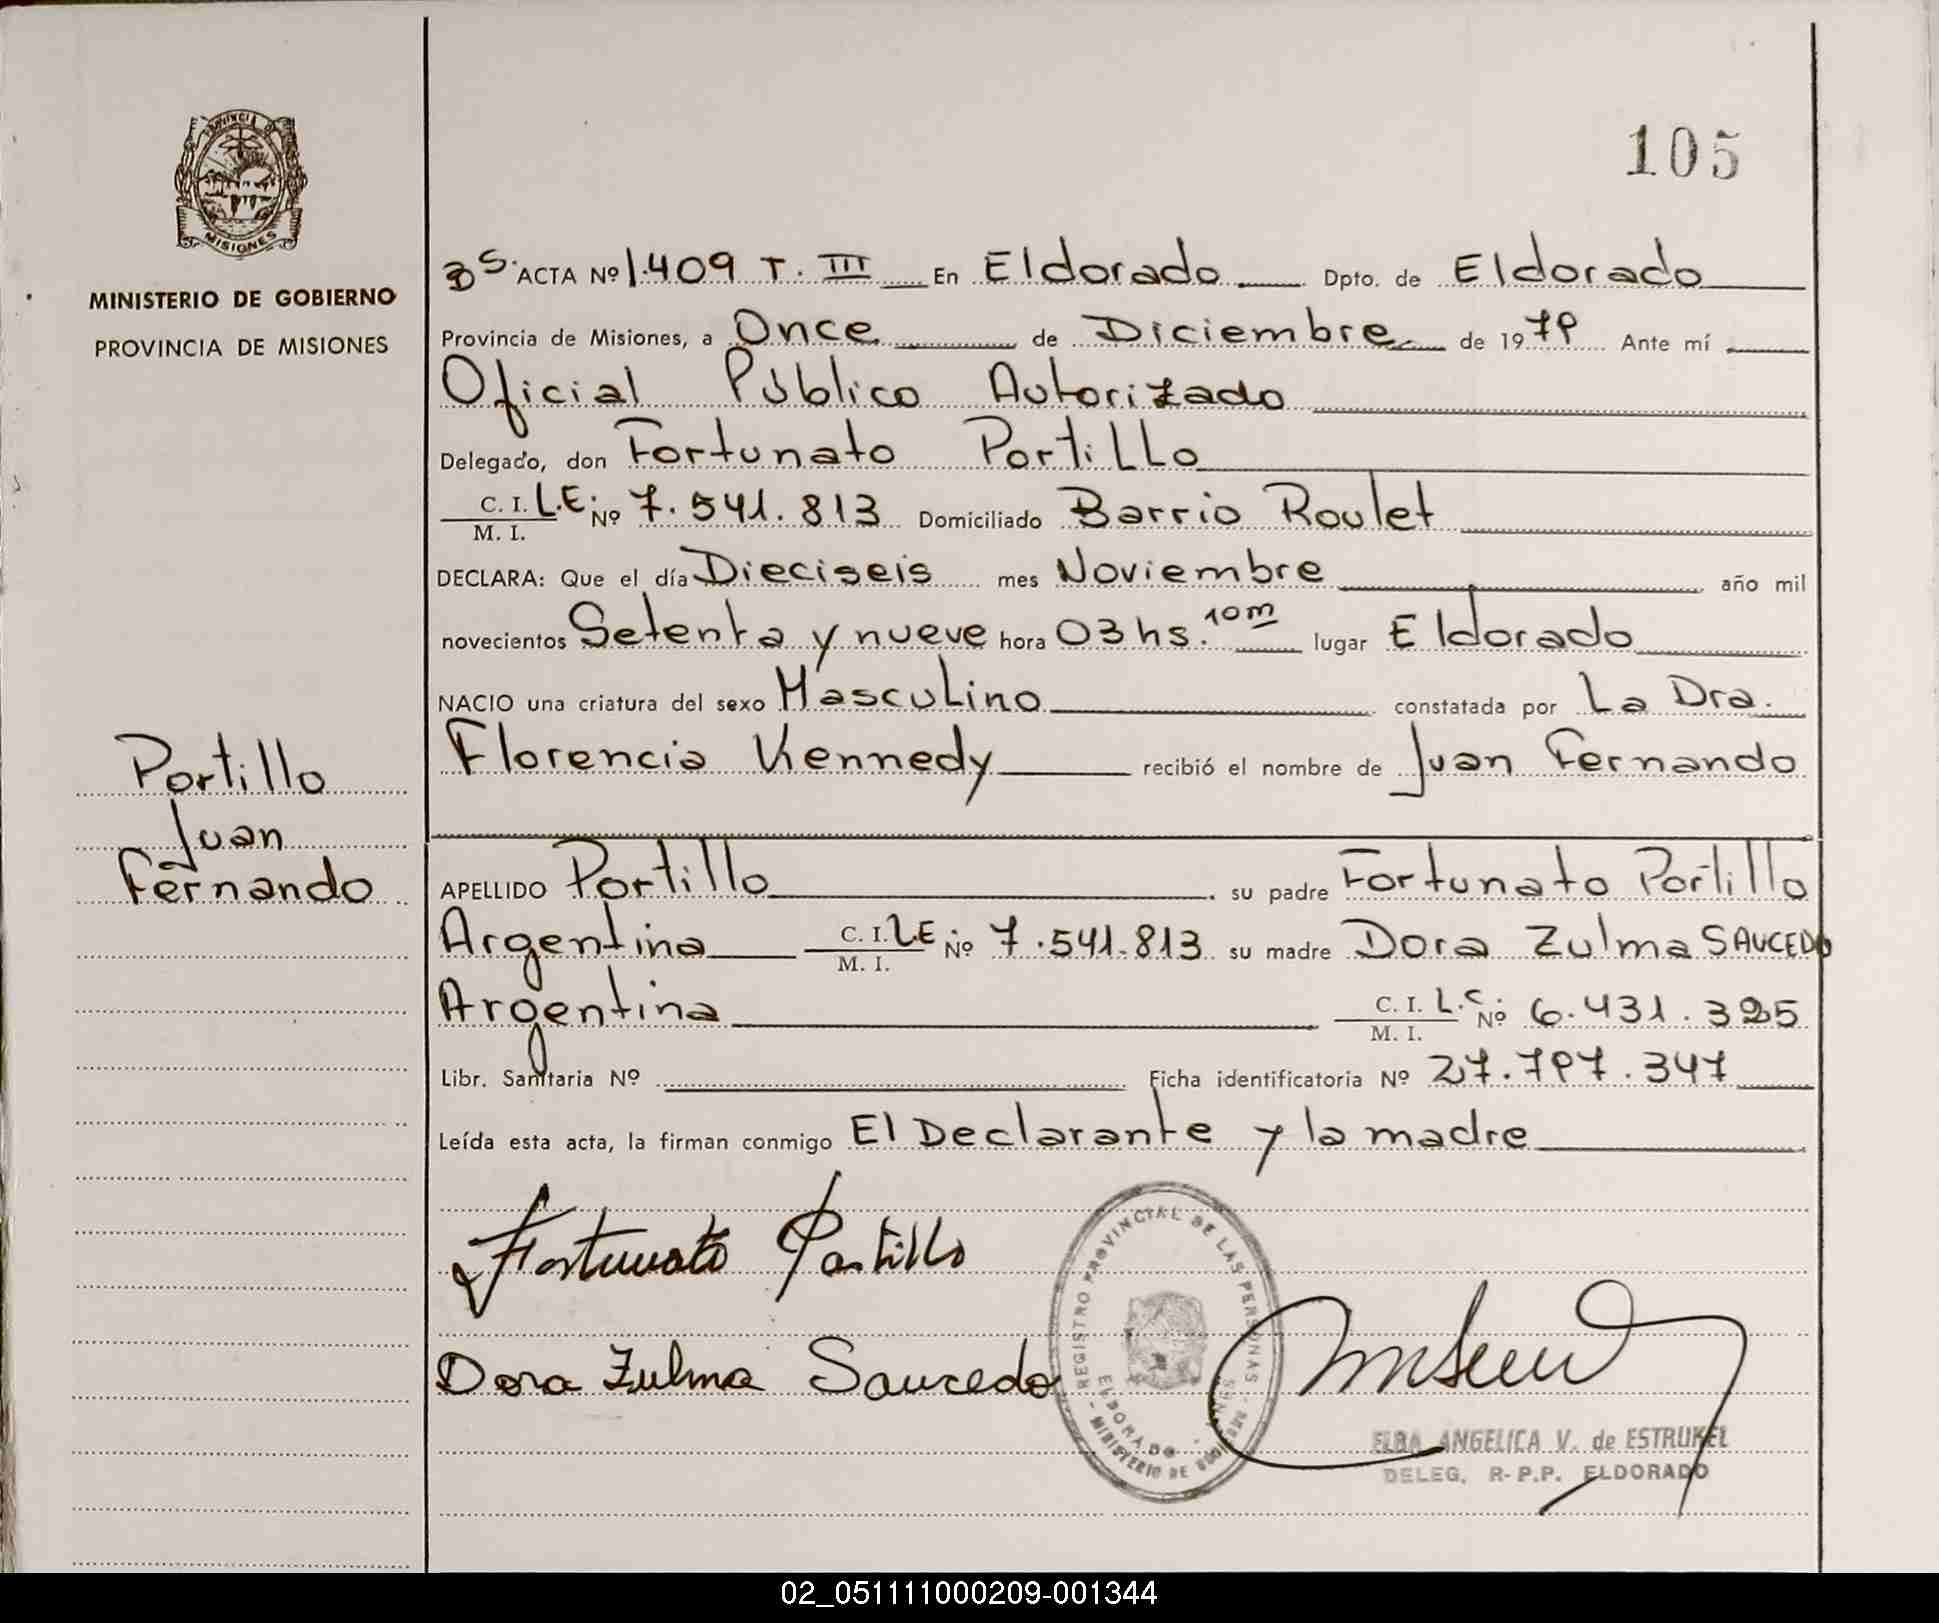 PROVINCIA DE
MISIONES
MINISTERIO DE GOBIERNO
PROVINCIA DE MISIONES
Portillo
Juan
Fernando
105
Bs. ACTA Nº 1.409 T. III En Eldorado Dpto. de Eldorado
Provincia de Misiones, a Once de Diciembre de 1979 Ante mí
Oficial Público Autorizado
Delegado, don Fortunato Portillo
C. I. L.E. Nº 7.541.813 Domiciliado Barrio Roulet
M. I.
DECLARA: Que el día Dieciseis mes Noviembre año mil
novecientos Setenta y nueve hora 03 hs. 10m lugar Eldorado
NACIO una criatura del sexo Masculino constatada por La Dra.
Florencia Kennedy recibió el nombre de Juan Fernando
APELLIDO Portillo su padre Fortunato Portillo
Argentina C. I. LE Nº 7.541.813 su madre Dora Zulma SAUCEDO
M. I.
Argentina C. I. L.C. Nº 6.431.325
M. I.
Libr. Sanitaria Nº Ficha identificatoria Nº 27.797.347
Leída esta acta, la firman conmigo El Declarante y la madre
Fortunato Portillo
Dora Zulma Saucedo
REGISTRO PROVINCIAL DE LAS PERSONAS
ELDORADO - MISIONES
MINISTERIO DE GOBIERNO
ELBA ANGELICA V. de ESTRUKEL
DELEG. R-P.P. ELDORADO
02_051111000209-001344